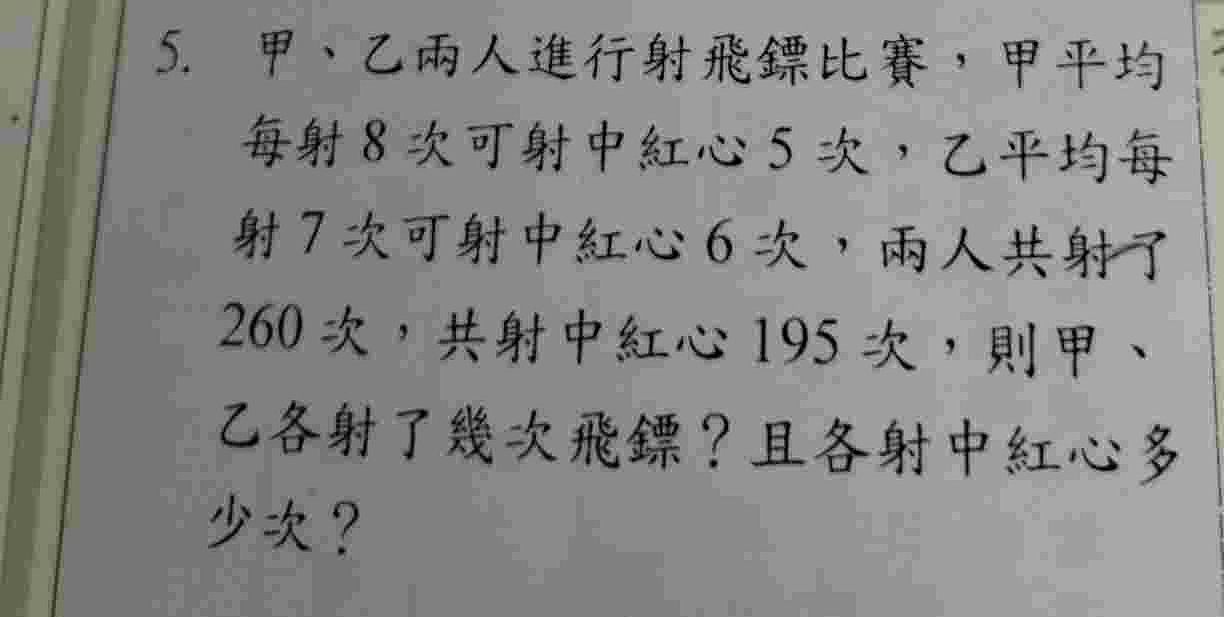 5. 甲、乙兩人進行射飛鏢比賽，甲平均
每射8次可射中紅心5次，乙平均每
射7次可射中紅心6次，兩人共射了
260次，共射中紅心195次，則甲、
乙各射了幾次飛鏢？且各射中紅心多
少次？